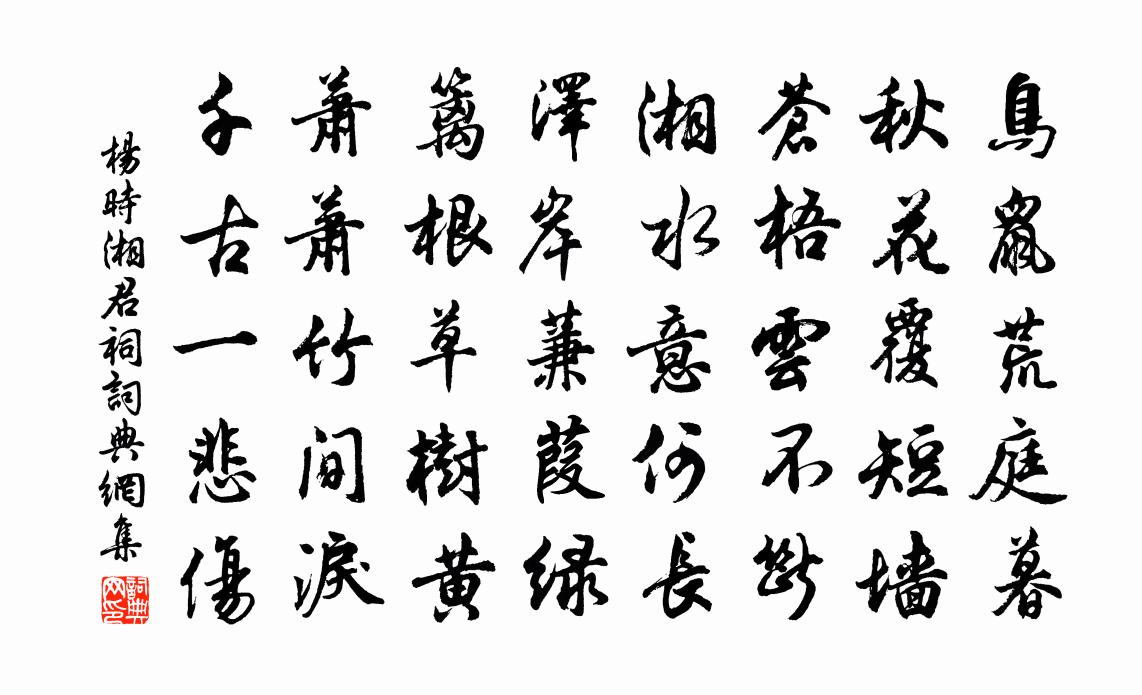 鳥鼠荒庭暮
秋花覆短墻
蒼梧雲不斷
湘水意何長
澤岸蒹葭綠
籬根草樹黃
蕭蕭竹間淚
千古一悲傷
楊時湘君祠詞典網集
詞典網印